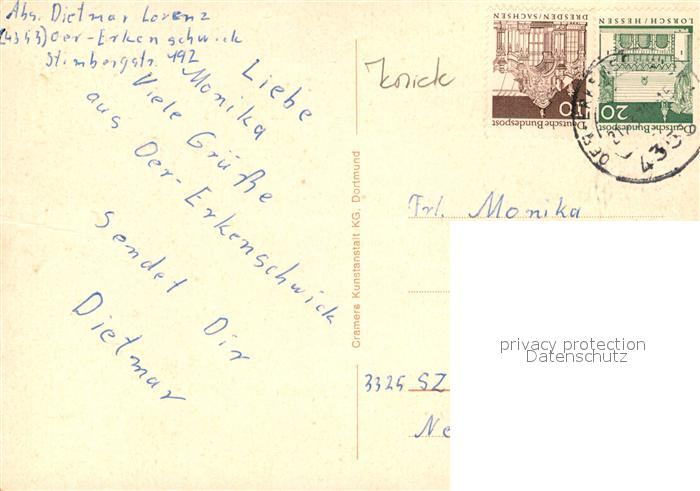 Abs. Dietmar Lorenz
(4353) Oer-Erkenschwick
Stimbergstr. 192
Liebe
Monika
Viele Grüße
aus Oer-Erkenschwick
sendet Dir
Dietmar
Cramers Kunstanstalt KG, Dortmund
DRESDEN/SACHSEN
Deutsche Bundespost
LORSCH/HESSEN
20
Deutsche Bundespost
Frl. Monika
3325 SZ
Ne
privacy protection
Datenschutz